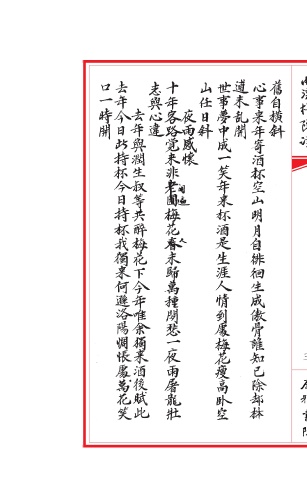 舊自橫斜
心事來年寄酒杯空山明月自徘徊生成傲骨誰知己除却林
逋未亂開
世事夢中成一笑年來杯酒是生涯人情到處梅花瘦高卧空
山任日斜
夜雨感懷
十年客路覺來非老圃梅花春未歸萬種閒愁一夜雨屠龍壯
志與心違
去年與潤生叔等共醉梅花下今年唯余獨來酒後賦此
去年今日此持杯今日持杯我獨來何遜洛陽惆悵處萬花笑
口一時開